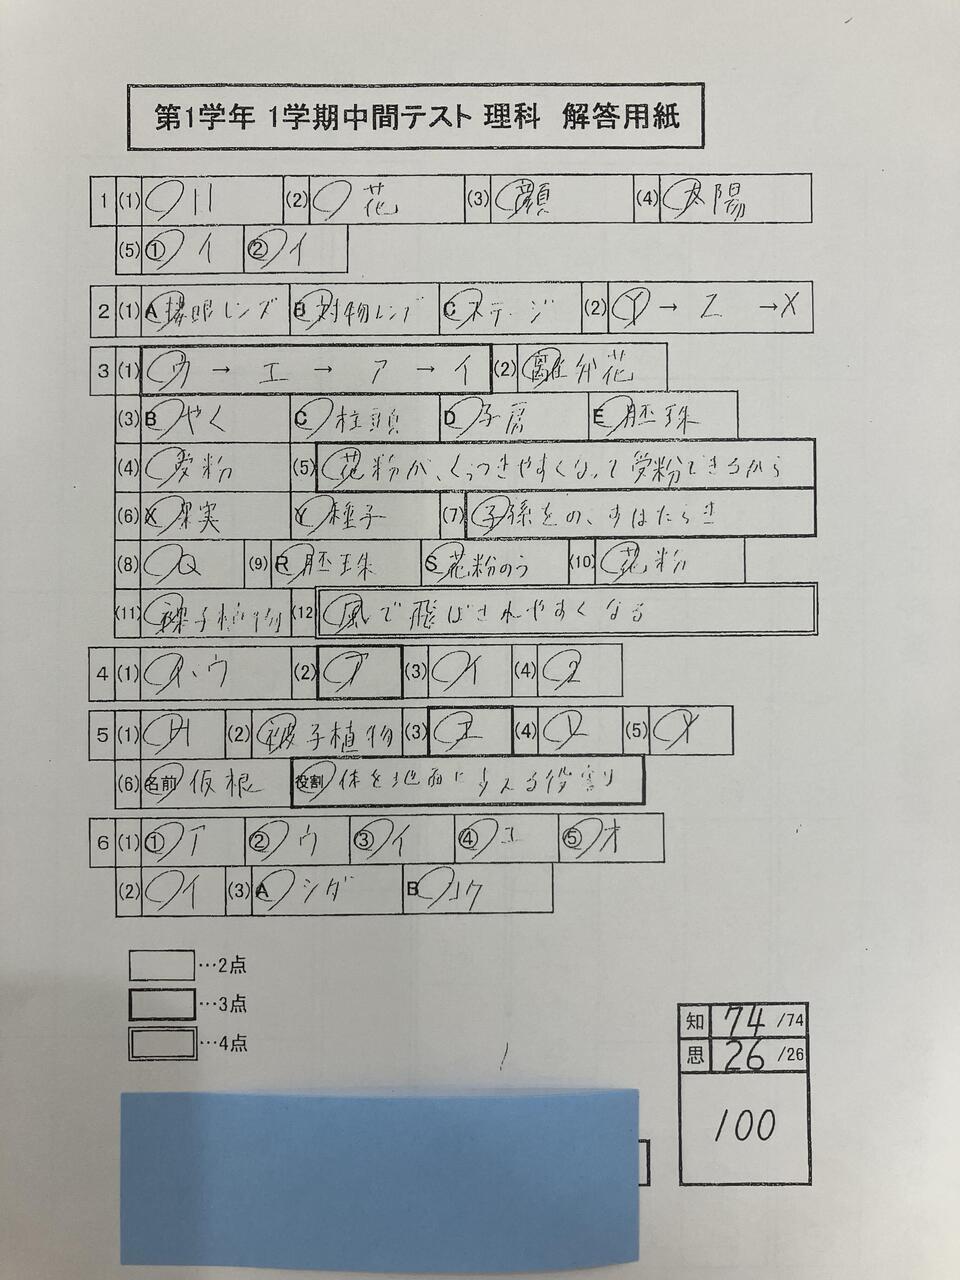 第1学年 1学期中間テスト 理科 解答用紙
1 (1) (2) 花 (3) 顔 (4) 太陽
(5) ① イ ② イ
2 (1) A 接眼レンズ B 対物レンズ C ステージ (2) Y → Z → X
3 (1) ウ → エ → ア → イ (2) 離弁花
(3) B やく C 柱頭 D 子房 E 胚珠
(4) 受粉 (5) 花粉が、くっつきやすくなって受粉できるから
(6) X 果実 Y 種子 (7) 子孫をのこすはたらき
(8) Q (9) R 胚珠 S 花粉のう (10) 花粉
(11) 裸子植物 (12) 風で飛ばされやすくなる
4 (1) イ、ウ (2) ア (3) イ (4) 2
5 (1) H (2) 被子植物 (3) エ (4) (5)
(6) 名前 仮根 役割 体を地面に支える役割り
6 (1) ① ア ② ウ ③ イ ④ エ ⑤ オ
(2) イ (3) A シダ B コケ
…2点
…3点
…4点
知 74 /74
思 26 /26
100